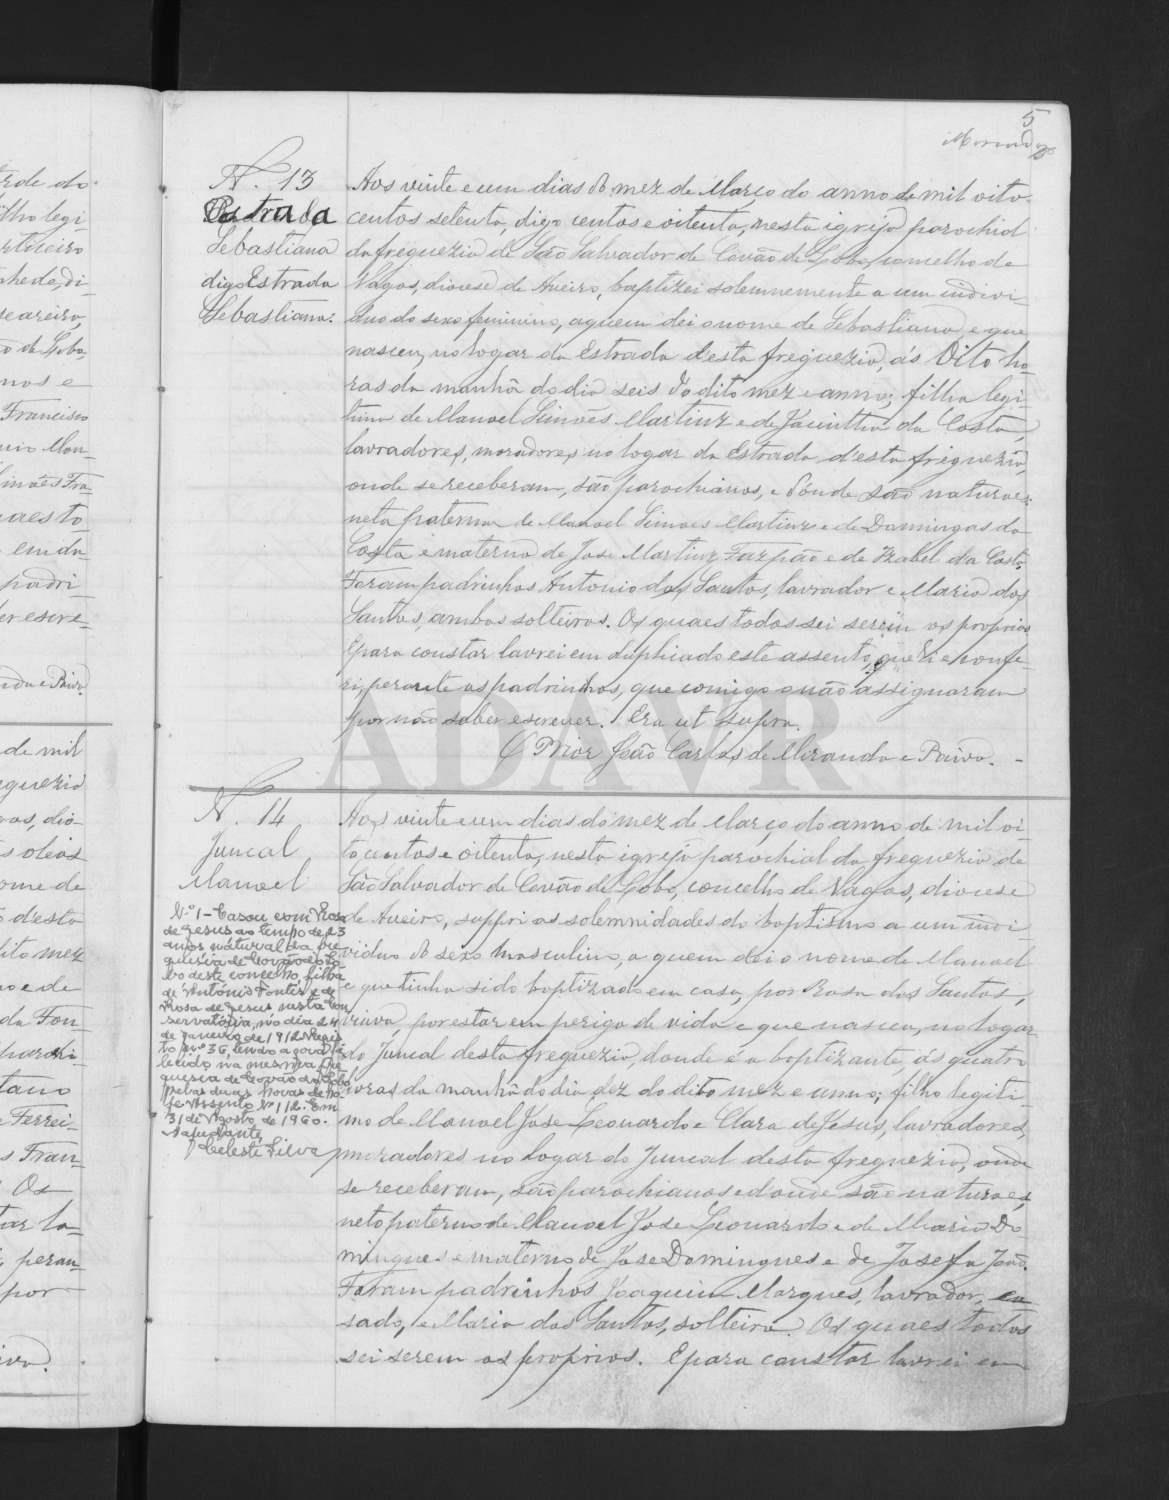 5
Miranda
N. 13
Estrada
Sebastiana
digo Estrada
Sebastiana.
Aos vinte e um dias do mez de Março do anno de mil oito
centos setenta, digo centos e oitenta, nesta igreja parochial
da freguezia de São Salvador de Covão do Lobo, concelho de
Vagos, diocese de Aveiro, baptizei solemnemente a um indivi-
duo do sexo feminino, a quem dei o nome de Sebastiana, e que
nasceu, no logar da Estrada d'esta freguezia, ás Oito ho-
ras da manhã do dia seis do dito mez e anno; filha legi-
tima de Manoel Simoes Martinz e de Jacintha da Costa,
lavradores, moradores no logar da Estrada d'esta freguezia,
onde se receberam, são parochianos, e donde são naturaes:
neta paterna de Manoel Simoes Martinz e de Domingas da
Costa e materna de Jose Martinz e de Izabel da Costa.
Foram padrinhos Antonio dos Santos, lavrador e Maria dos
Santos, ambos solteiros. Os quaes todos sei serem os proprios.
E para constar lavrei em duplicado este assento, que li e confe-
ri, perante os padrinhos, que comigo não assignaram
por não saber escrever. Era ut supra.
O Prior João Carlos de Miranda e Paiva.
ADAVR
N. 14
Juncal
Manoel
Nº 1 - Casou com Rosa
de Jesus ao tempo de 23
anos natural da fre
guesia de Covão do Lo-
bo deste concelho, filha
de António Fontes e de
Rosa de Jesus nesta Con
servatória, no dia 24
de Janeiro de 1912 Regis
to nº 36, tendo a
lecido na mesma fre
guesia de Covão do Lobo
pelas duas horas de ho
je Assento Nº 112. Em
31 de Agosto de 1960.
A ajudante
Celeste Silva
Aos vinte e um dias do mez de Março do anno de mil oi-
tocentos e oitenta, nesta igreja parochial da freguezia de
São Salvador de Covão do Lobo, concelho de Vagos, diocese
de Aveiro, suppri as solemnidades do baptismo a um indi-
viduo do sexo masculino, a quem dei o nome de Manoel
e que tinha sido baptizado em casa, por Rosa dos Santos,
viuva, por estar em perigo de vida e que nasceu, no logar
do Juncal desta freguezia, donde é a baptizante, ás quatro
horas da manhã do dia dez do dito mez e anno; filho legiti-
mo de Manoel Jose Leonardo e Clara de Jesus, lavradores,
moradores no logar do Juncal desta freguezia, onde
se receberam, são parochianos e donde são naturaes,
neto paterno de Manoel Jose Leonardo e de Maria Do-
mingues e materno de Jose Domingues e de Josefa João.
Foram padrinhos Joaquim Marques, lavrador, ca-
sado, e Maria dos Santos, solteira. Os quaes todos
sei serem os proprios. E para constar lavrei em